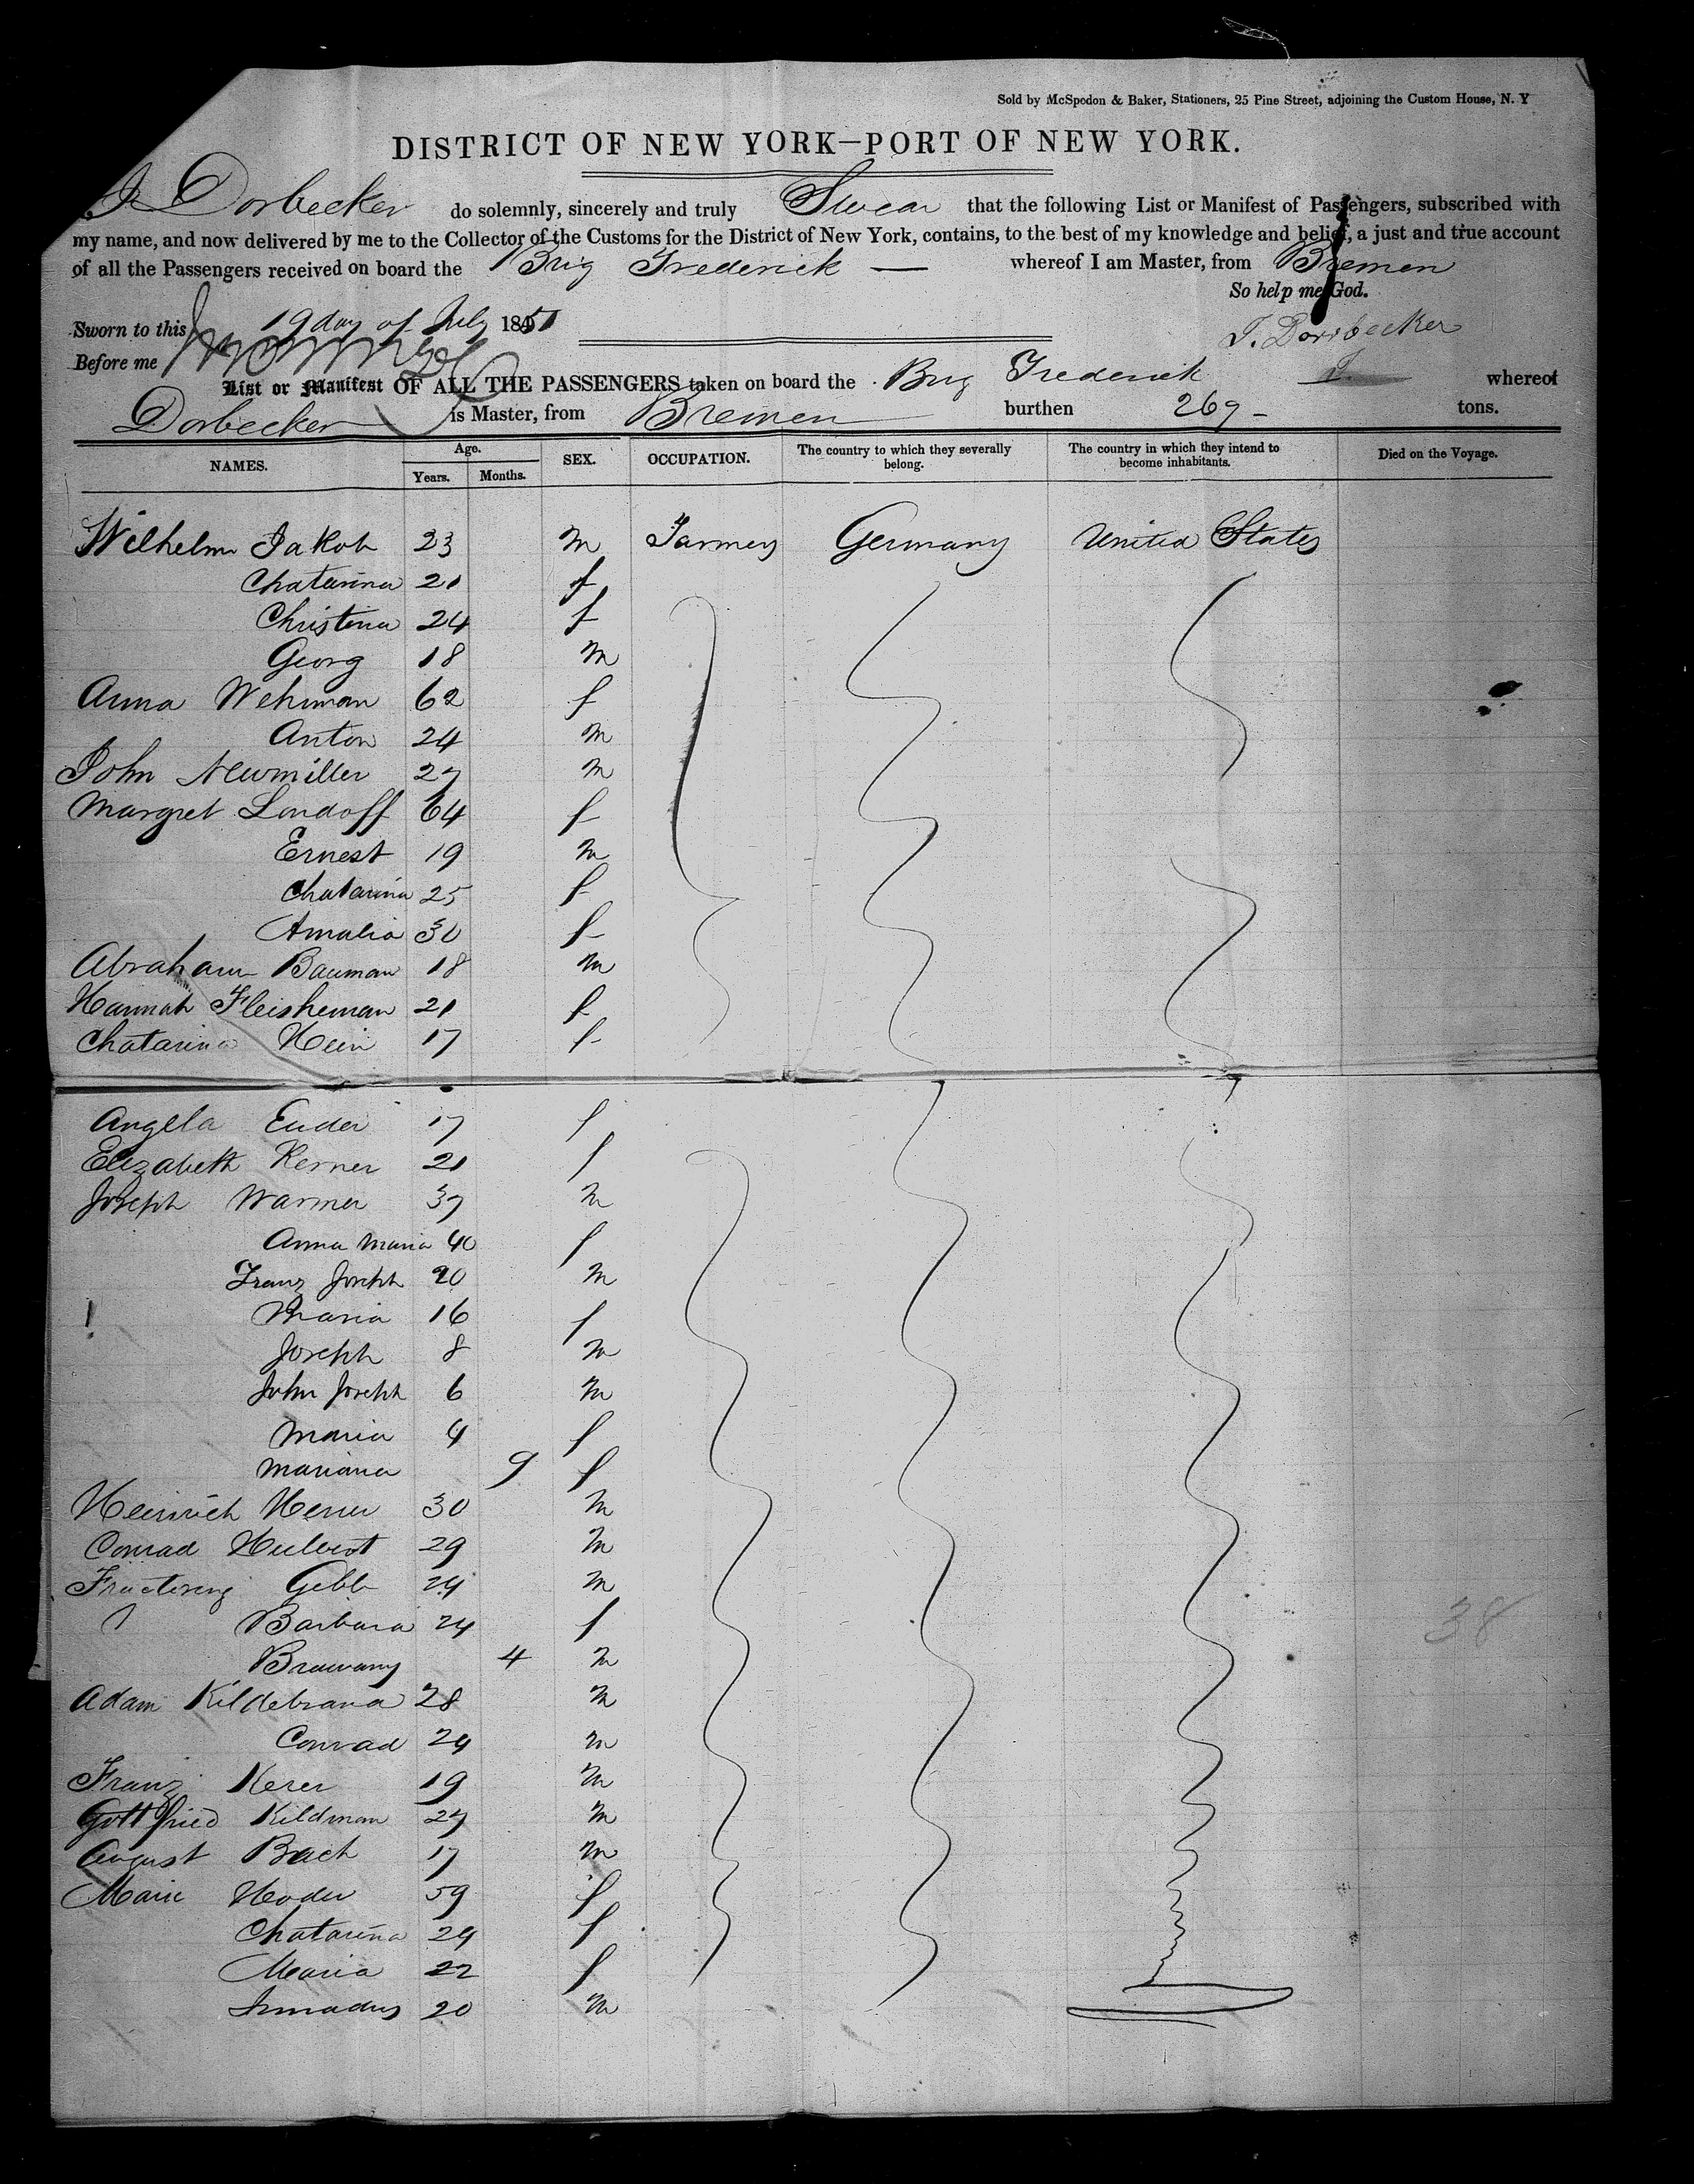 Sold by McSpedon & Baker, Stationers, 25 Pine Street, adjoining the Custom House, N. Y
DISTRICT OF NEW YORK—PORT OF NEW YORK.
I Dorbecker do solemnly, sincerely and truly Swear that the following List or Manifest of Passengers, subscribed with
my name, and now delivered by me to the Collector of the Customs for the District of New York, contains, to the best of my knowledge and belief, a just and true account
of all the Passengers received on board the Brig Frederick — whereof I am Master, from Bremen
So help me God.
Sworn to this 19 day of July 1851
Before me
List or Manifest OF ALL THE PASSENGERS taken on board the Brig Frederick whereof
Dorbecker is Master, from Bremen burthen 269 - tons.
NAMES. Age. Years. Months. SEX. OCCUPATION. The country to which they severally belong. The country in which they intend to become inhabitants. Died on the Voyage.
Wilhelm Jakob 23 m Farmer Germany United States
Chatarina 21 f
Christina 24 f
Georg 18 m
Anna Wehman 62 f
Anton 24 m
John Newmiller 27 m
Margret Londoff 64 f
Ernest 19 m
Chatarina 25 f
Amalia 30 f
Abraham Bauman 18 m
Hannah Fleisheman 21 f
Chatarina Hein 17 f
Angela Euder 17 f
Elizabeth Kerner 21 f
Joseph Warmer 37 m
Anna Maria 40 f
Franz Joseph 20 m
Maria 16 f
Joseph 8 m
John Joseph 6 m
Maria 4 f
Mariana 9 f
Heinrich 30 m
Conrad 29 m
Gebb 24 m
Barbara 24 f
4 m
Adam Hildebrand 28 m
Conrad 24 m
Franz Kerer 19 m
Gottfried Kildman 27 m
August Bach 17 m
Marie Hoder 59 f
Chatarina 24 f
Maria 22 f
20 m
38